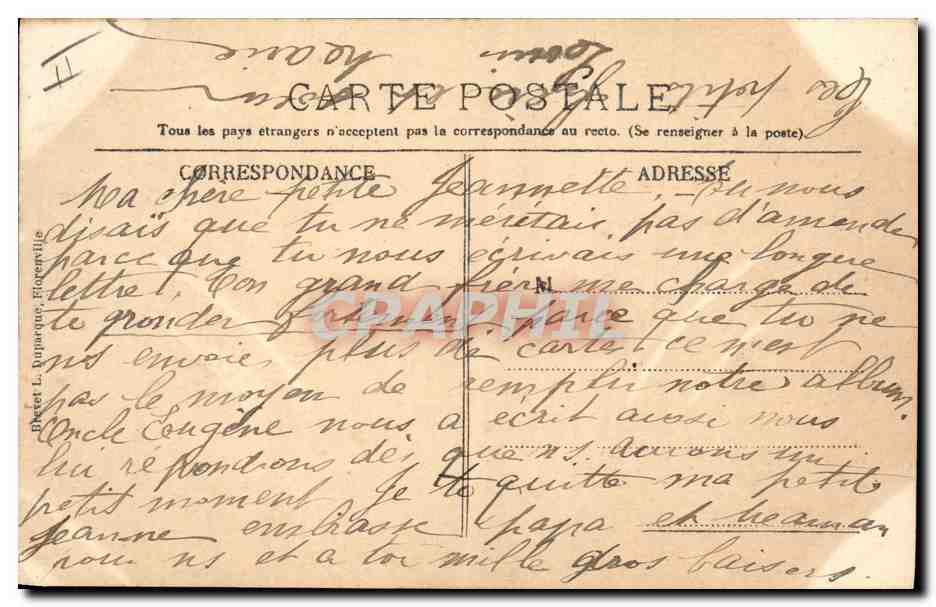 II
CARTE POSTALE
Tous les pays étrangers n'acceptent pas la correspondance au recto. (Se renseigner à la poste)
CORRESPONDANCE
ADRESSE
Ma chère petite Jeannette, tu nous
disais que tu ne méritais pas d'amende
parce que tu nous écrivais une longue
lettre, Ton grand frère me charge de
te gronder fortement parce que tu ne
ns envoie plus de carte, ce n'est
pas le moyen de remplir notre album.
Oncle Eugène nous a écrit aussi nous
lui répondrons dès que ns aurons un
petit moment, Je te quitte ma petite
Jeanne embrasse papa et maman
pour ns et a toi mille gros baisers.
M
Brevet L. Duparque, Florenville
CPAPHIL
Les petits
Louis
Marie